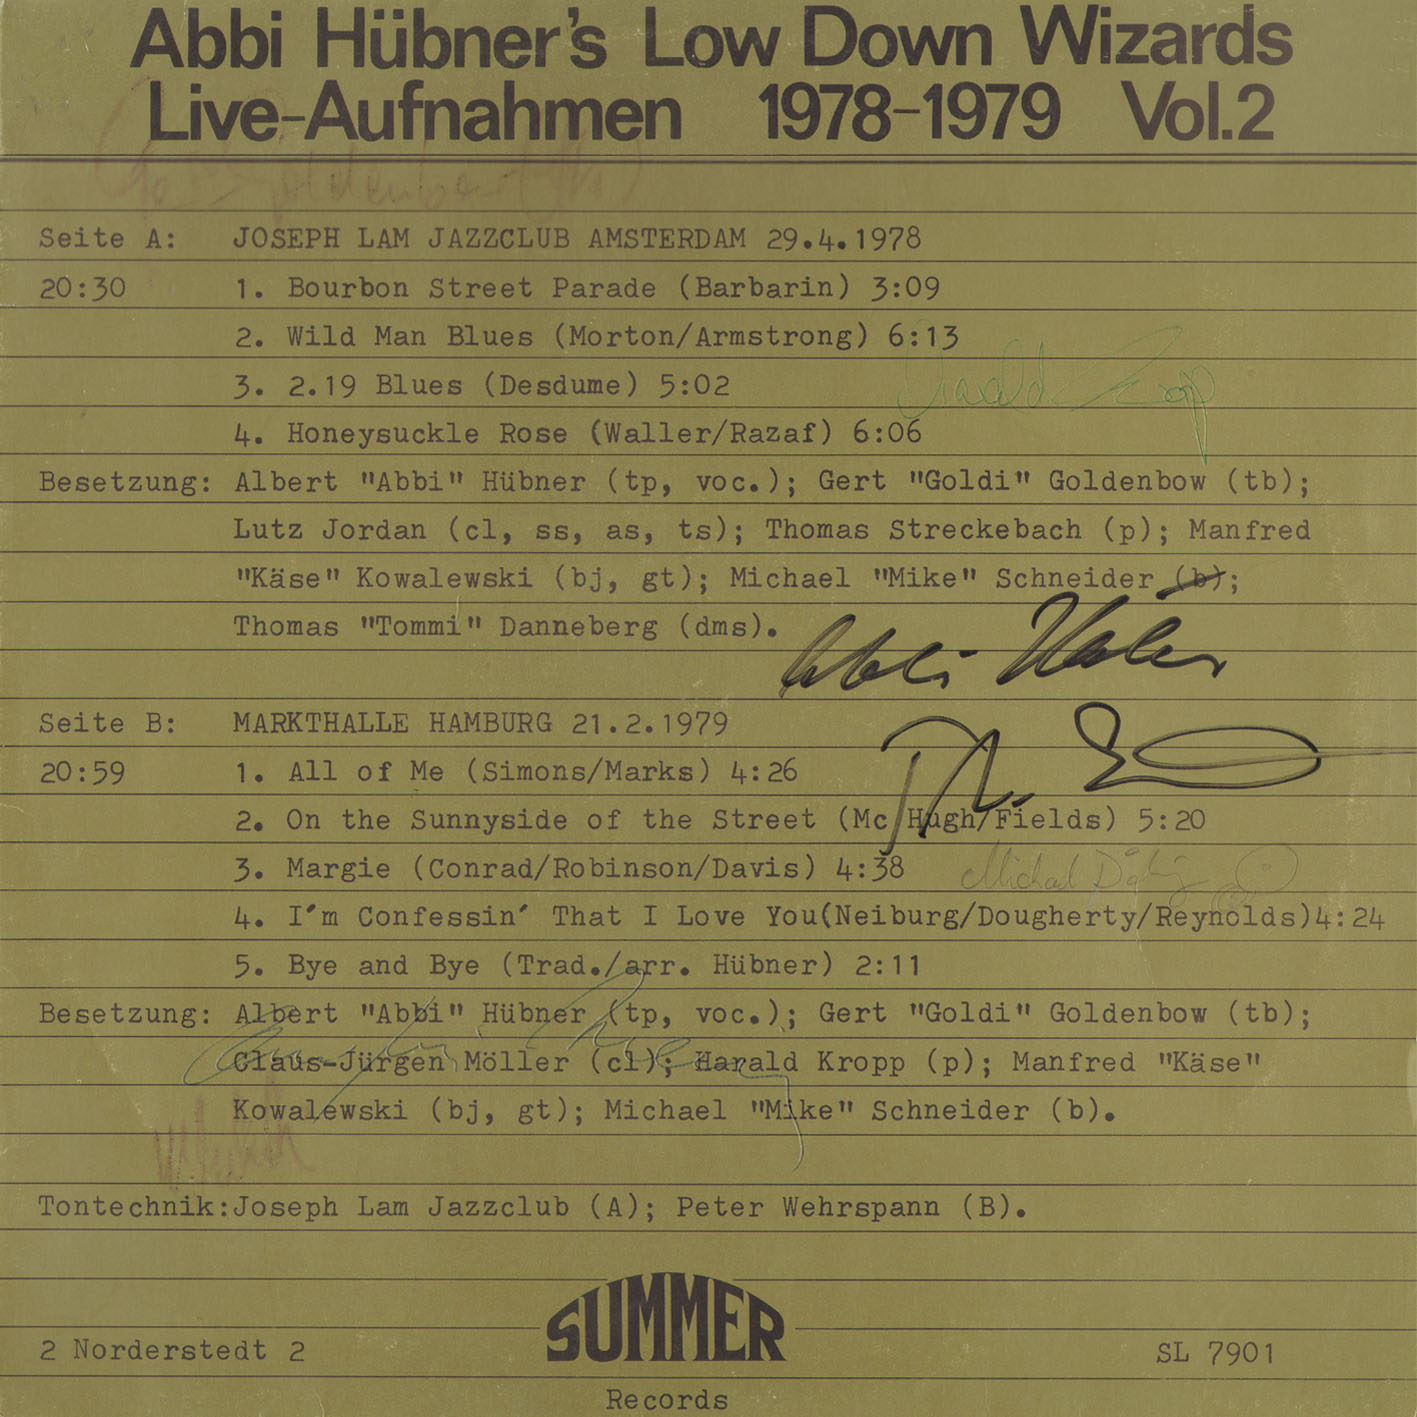 Abbi Hübner's Low Down Wizards
Live-Aufnahmen 1978-1979 Vol.2
Seite A: JOSEPH LAM JAZZCLUB AMSTERDAM 29.4.1978
20:30 1. Bourbon Street Parade (Barbarin) 3:09
2. Wild Man Blues (Morton/Armstrong) 6:13
3. 2.19 Blues (Desdume) 5:02
Harald Kropp
4. Honeysuckle Rose (Waller/Razaf) 6:06
Besetzung: Albert "Abbi" Hübner (tp, voc.); Gert "Goldi" Goldenbow (tb);
Lutz Jordan (cl, ss, as, ts); Thomas Streckebach (p); Manfred
"Käse" Kowalewski (bj, gt); Michael "Mike" Schneider (b);
Thomas "Tommi" Danneberg (dms).
Abbi Hübner
Seite B: MARKTHALLE HAMBURG 21.2.1979
20:59 1. All of Me (Simons/Marks) 4:26
2. On the Sunnyside of the Street (Mc Hugh/Fields) 5:20
3. Margie (Conrad/Robinson/Davis) 4:38
Michael
4. I'm Confessin' That I Love You(Neiburg/Dougherty/Reynolds)4:24
5. Bye and Bye (Trad./arr. Hübner) 2:11
Besetzung: Albert "Abbi" Hübner (tp, voc.); Gert "Goldi" Goldenbow (tb);
Claus-Jürgen Möller (cl); Harald Kropp (p); Manfred "Käse"
Kowalewski (bj, gt); Michael "Mike" Schneider (b).
Tontechnik:Joseph Lam Jazzclub (A); Peter Wehrspann (B).
SUMMER
2 Norderstedt 2 SL 7901
Records